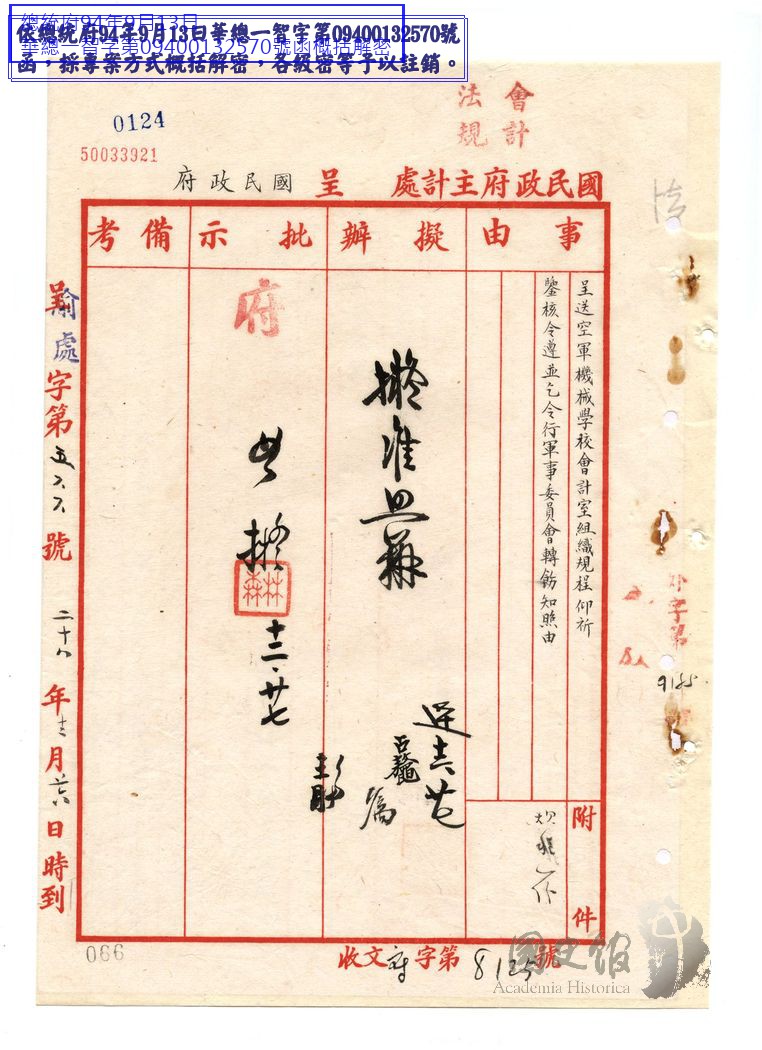 總統府94年9月13日
華總一智字第09400132570號函概括解密
依總統府94年9月13日華總一智字第09400132570號
函，採專案方式概括解密，各級密等予以註銷。
會計
法規
0124
50033921
國民政府主計處 呈 國民政府
事由
擬辦
批示
備考
呈送空軍機械學校會計室組織規程仰祈
鑒核令遵並乞令行軍事委員會轉飭知照由
附件
擬准照辦
府
如擬
林森
十二・廿七
呈
渝處字第五六六號
二十八年十二月廿六日時到
字第
9185
收文府字第8125號
066
國史館
Academia Historica